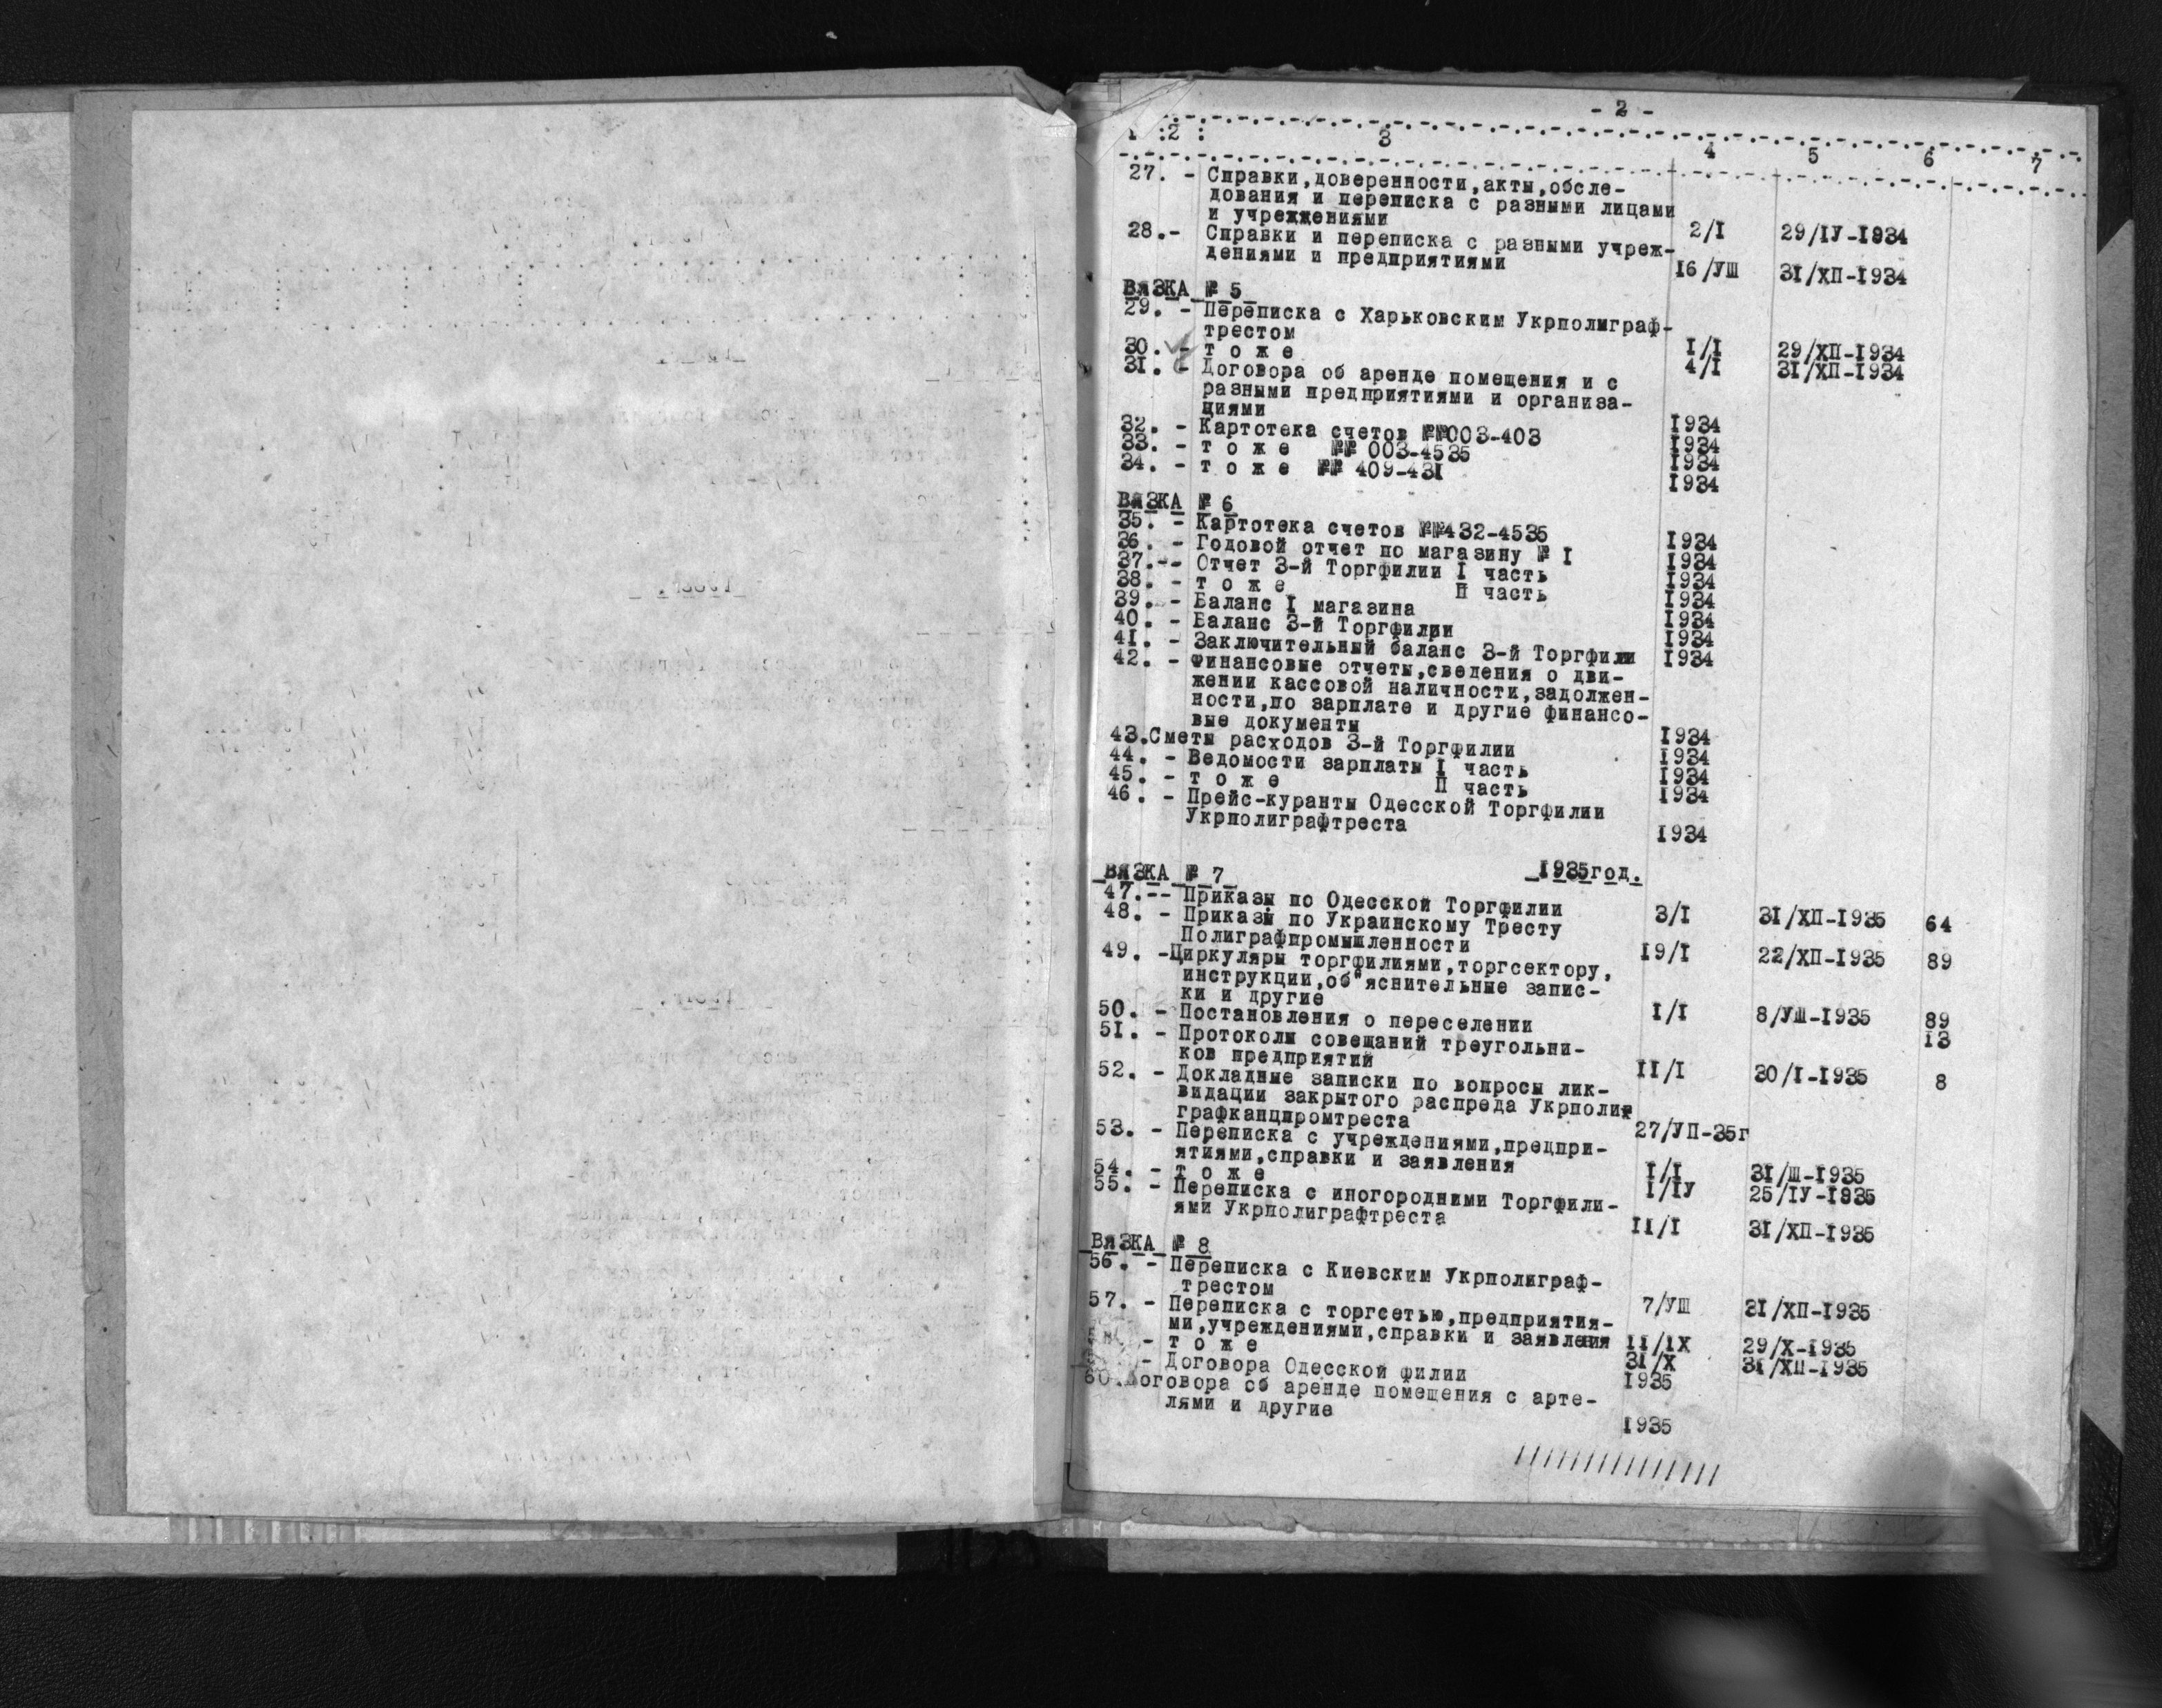 - 2 -
1 :2 : 3 4 5 6 7
27. - Справки,доверенности,акты,обсле-
дования и переписка с разными лицами
и учреждениями 2/I 29/IУ-1934
28.- Справки и переписка с разными учреж-
дениями и предприятиями 16/УШ 31/ХП-1934
ВЯЗКА № 5
29. - Переписка с Харьковским Укрполиграф-
трестом I/I 29/ХП-1934
30. - т о ж е 4/I 31/ХП-1934
31. - Договора об аренде помещения и с
разными предприятиями и организа-
циями 1934
32. - Картотека счетов №№003-403 1934
33. - т о ж е №№ 003-4535 1934
34. - т о ж е №№ 409-431 1934
ВЯЗКА № 6
35. - Картотека счетов №№432-4535 1934
36. - Годовой отчет по магазину № I 1934
37.-- Отчет 3-й Торгфилии I часть 1934
38. - т о ж е П часть 1934
39. - Баланс I магазина 1934
40. - Баланс 3-й Торгфилии 1934
41. - Заключительный баланс 3-й Торгфили 1934
42. - Финансовые отчеты,сведения о дви-
жении кассовой наличности,задолжен-
ности,по зарплате и другие финансо-
вые документы 1934
43.Сметы расходов 3-й Торгфилии 1934
44. - Ведомости зарплаты I часть 1934
45. - т о ж е П часть 1934
46. - Прейс-куранты Одесской Торгфилии
Укрполиграфтреста 1934
ВЯЗКА № 7 1935год.
47.-- Приказы по Одесской Торгфилии 3/I 31/ХП-1935 64
48. - Приказы по Украинскому Тресту
Полиграфпромышленности 19/I 22/ХП-1935 89
49. -Циркуляры торгфилиями,торгсектору,
инструкции,об"яснительные запис-
ки и другие I/I 8/УШ-1935 89
50. - Постановления о переселении 13
51. - Протоколы совещаний треугольни-
ков предприятий II/I 30/I-1935 8
52. - Докладные записки по вопросы лик-
видации закрытого распреда Укрполи
графканцпромтреста 27/УП-35г
53. - Переписка с учреждениями,предпри-
ятиями,справки и заявления I/I 31/Ш-1935
54. - т о ж е I/IУ 25/IУ-1935
55. - Переписка с иногородними Торгфили-
ями Укрполиграфтреста II/I 31/ХП-1935
ВЯЗКА № 8
56. - Переписка с Киевским Укрполиграф-
трестом 7/УШ 31/ХП-1935
57. - Переписка с торгсетью,предприятия-
ми,учреждениями,справки и заявления II/IX 29/Х-1935
- т о ж е 31/Х 31/ХП-1935
- Договора Одесской филии 1935
60.Договора об аренде помещения с арте-
лями и другие 1935
///////////////